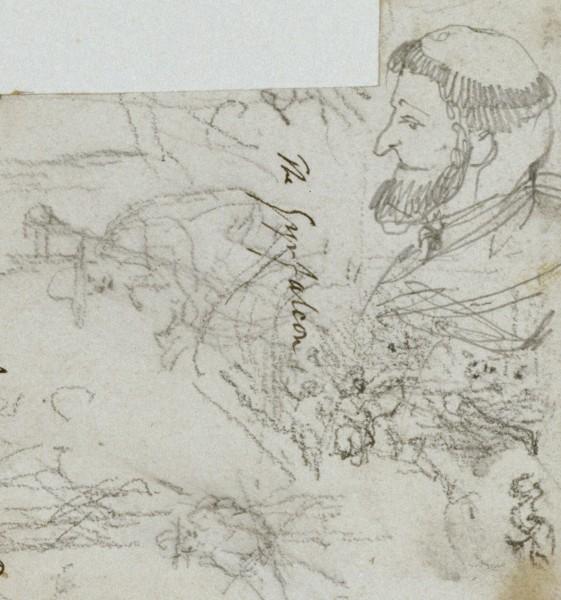 The Gyrfalcon